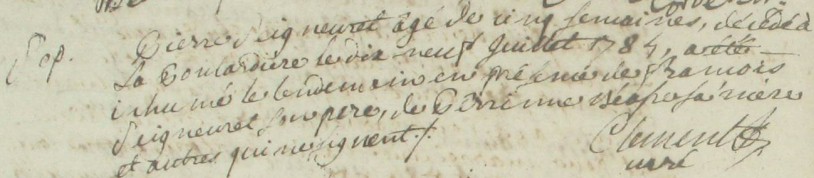 Sep. Pierre Seigneuret agé de cinq semaines, décédé à
La Poulardière le dix-neuf juillet 1784, a été
inhumé le lendemain en présence de françois
Seigneuret son pere, de Perrinne sa mère
et autres qui ne signent.
Clement
curé